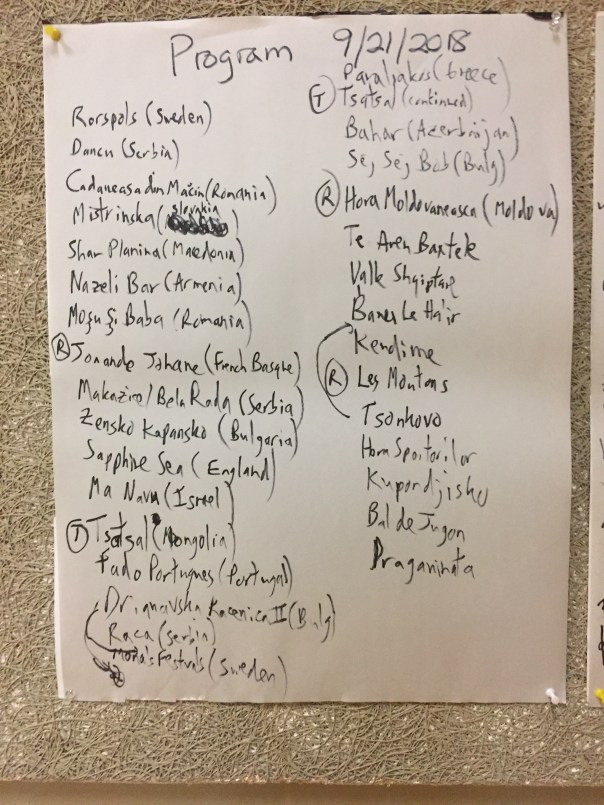 Program 9/21/2018
Rorspols (Sweden)
Dancu (Serbia)
Cadaneasa din Macin (Romania)
Mistrinska (Slovakia)
Shar Planina (Macedonia)
Nazeli Bar (Armenia)
Moşu Şi Baba (Romania)
(R) Jomande Johane (French Basque)
Makazice/Bela Rada (Serbia)
Zensko Kapansko (Bulgaria)
Sapphire Sea (England)
Ma Navu (Israel)
(T) Tsatsal (Mongolia)
Fado Portugues (Portugal)
Drianavska Racenica II (Bulg)
Raca (Serbia)
Mona's Festvals (Sweden)
Paraliakos (Greece)
(T) Tsatsal (continued)
Bahar (Azerbaijan)
Sej Sej Bob (Bulg)
(R) Hora Moldovaneasca (Moldova)
Te Aven Baxtele
Valle Shqiptare
Banes Le Ha'ir
Kendime
(R) Les Moutons
Tsonkovo
Hora Spoitorilor
Kupondjisko
Bal de Jugon
Draganinata